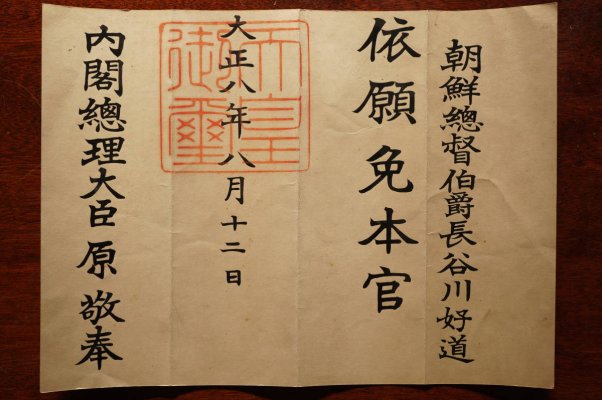 朝鮮總督伯爵長谷川好道
依願免本官
天皇御璽
大正八年八月十二日
內閣總理大臣原敬奉